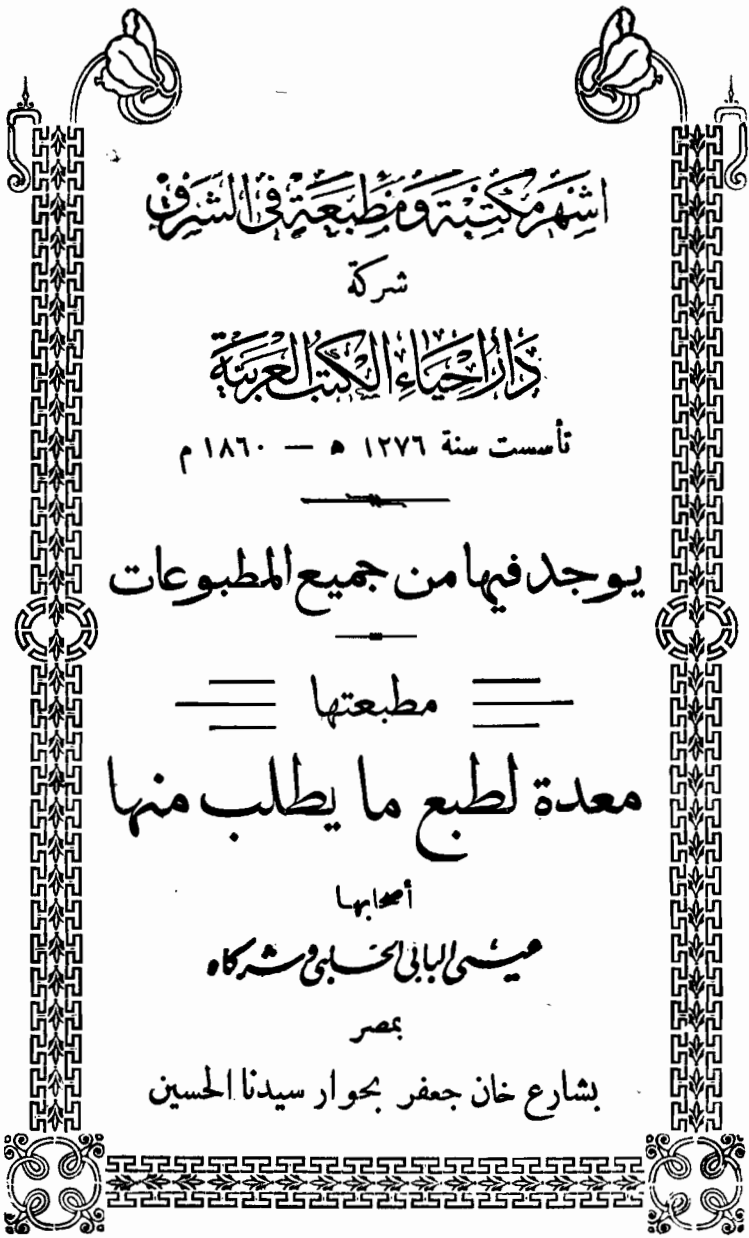 اشهر مكتبة ومطبعة فى الشرق
شركة
دار احياء الكتب العربية
تأسست سنة ١٢٧٦ ه — ١٨٦٠ م
يوجد فيها من جميع المطبوعات
مطبعتها
معدة لطبع ما يطلب منها
أصحابها
عيسى البابى الحلبى وشركاه
بمصر
بشارع خان جعفر بجوار سيدنا الحسين